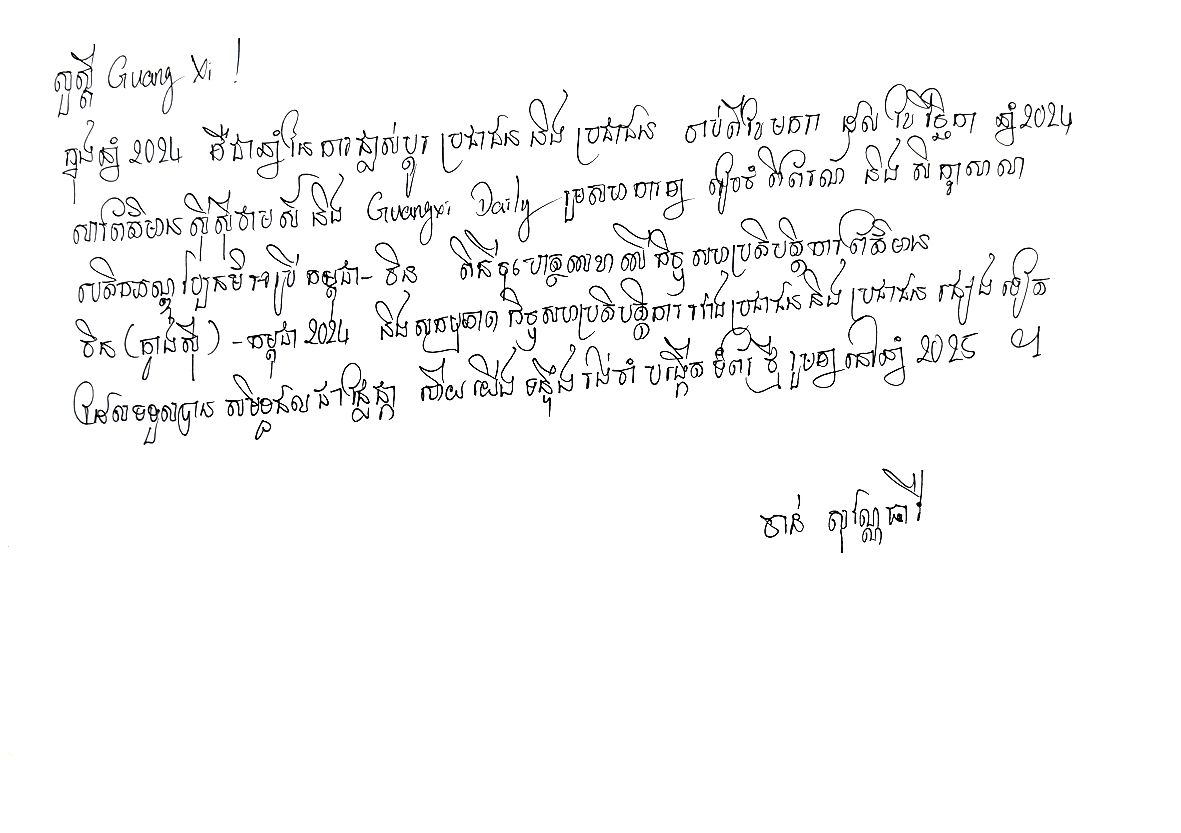 សួស្តី Guang Xi !
ក្នុងឆ្នាំ 2024 គឺជាឆ្នាំនៃការផ្លាស់ប្តូរ ប្រជាជន និង ប្រជាជន ចាប់ពីខែមករា ដល់ ខែវិច្ឆិកា ឆ្នាំ2024
សារព័ត៌មាន ស៊ីស៊ីថាមស៍ និង Guangxi Daily រួមសហការគ្នា រៀបចំ ពិព័រណ៍ និង សិក្ខាសាលា
បែបកុមារម្មី កម្ពុជា- ចិន ពិធីចុះហត្ថលេខា លើកិច្ចសហប្រតិបត្តិការព័ត៌មាន
ចិន (ក្វាងស៊ី) - កម្ពុជា 2024 និងសកម្មភាព កិច្ចសហប្រតិបត្តិការ រវាងប្រជាជន និង ប្រជាជន ផ្សេងទៀត
ដែលទទួលបាន សមិទ្ធផល ជាផ្លែផ្កា ហើយ យើង ទន្ទឹង រង់ចាំ បង្កើត ទំព័រ ថ្មី រួមគ្នានៅឆ្នាំ 2025 ។
ចាន់ សុវណ្ណធារី